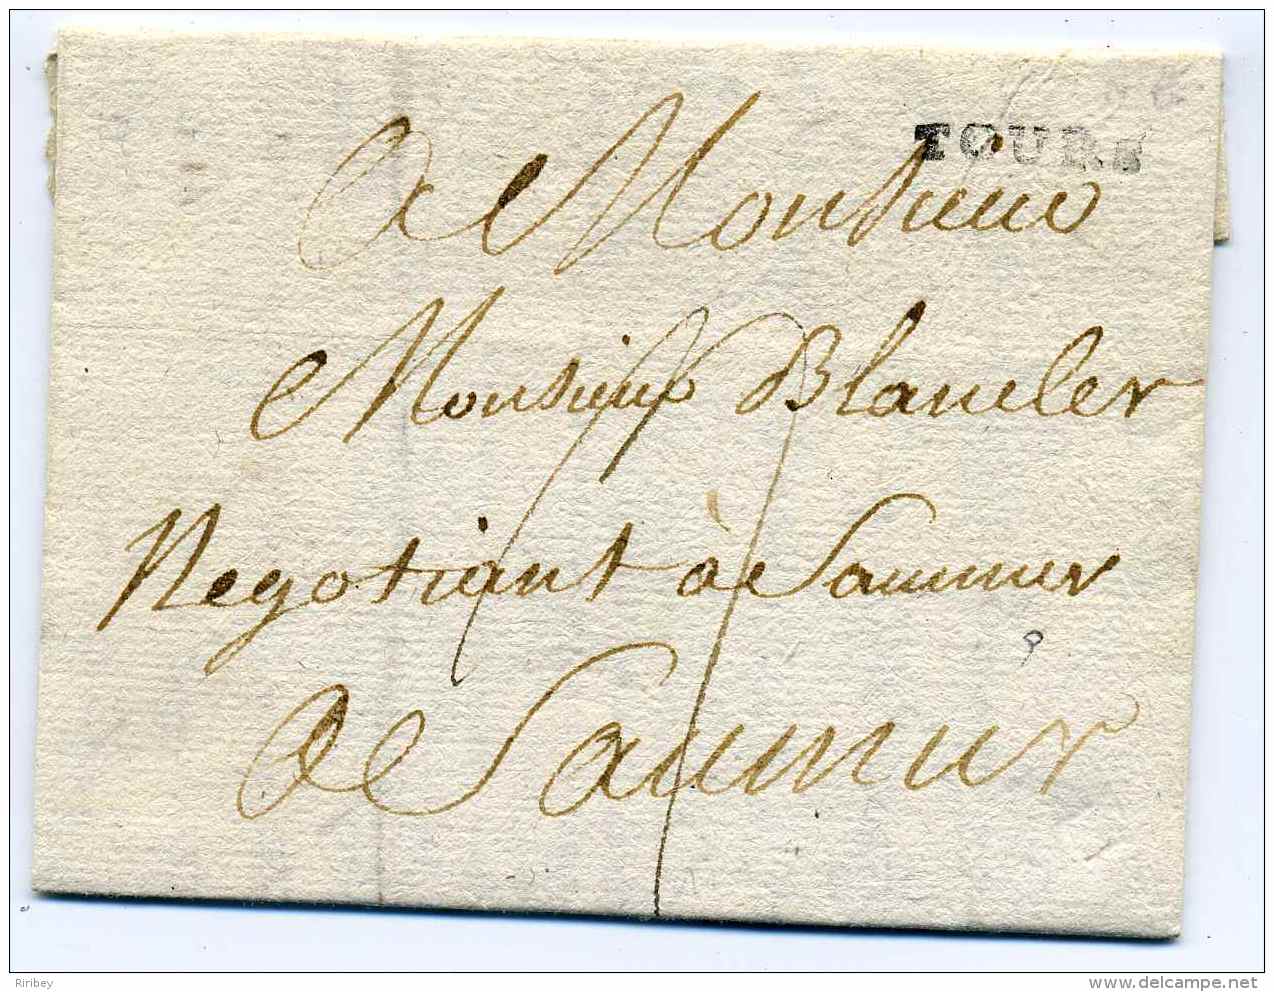 TOURS
A Monsieur
Monsieur Blancler
Negotiant à Saumur
A Saumur
Riribey
delcampe.net